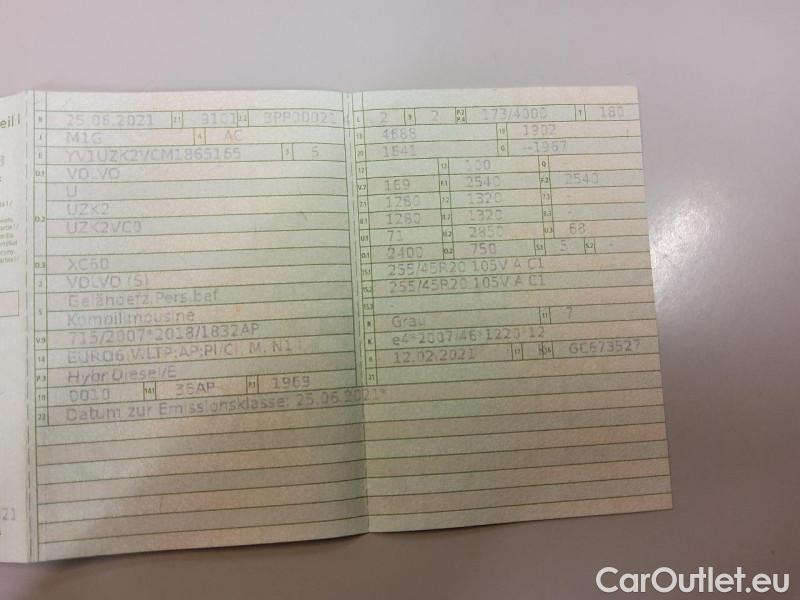 B 25.06.2021 2.1 9101 2.2
J M1G 4 AC
E YV1UZK2VCM1865165 3 5
D.1 VOLVO
U
D.2 UZK2
UZK2VC0
D.3 XC60
2 VOLVO (S)
5 Geländefz.Pers.bef.
Kombilimousine
V.9 715/2007*2018/1832AP
14 EURO6;WLTP;AP;PI/CI, M, N1 I
P.3 Hybr.Diesel/E
10 0010 14.1 36AP P.1 1969
22 Datum zur Emissionsklasse: 25.06.2021*
L 2 9 2 P.2 P.4 173/4000 T 180
18 4688 19 1902
20 1641 G --1967
12 - 13 100 Q -
V.7 169 F.1 2540 F.2 2540
7.1 1280 7.2 1320 7.3 -
8.1 1280 8.2 1320 8.3 -
U.1 71 U.2 2850 U.3 68
O.1 2400 O.2 750 S.1 5 S.2 -
15.1 255/45R20 105V A C1
15.2 255/45R20 105V A C1
15.3 -
R Grau 11 7
K e4*2007/46*1220*12
6 12.02.2021 17 K 16 GC673527
21
CarOutlet.eu